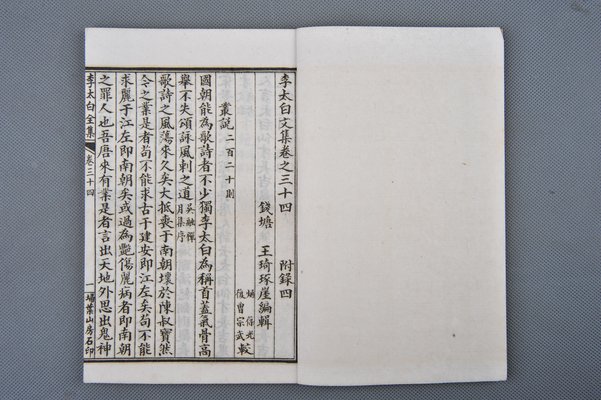 李太白文集卷之三十四 附錄四
錢塘 王琦琢崖編輯
端臣思謙 較
叢說二百二十則
國朝能為歌詩者不少獨李太白為稱首蓋氣骨高
舉不失頌詠風刺之道吳融禪月集序
歌詩之風蕩來久矣大抵喪于南朝壞於陳叔寶然
今之業是者苟不能求古于建安即江左矣苟不能
求麗于江左即南朝矣或過為艷傷麗病者即南朝
之罪人也吾唐來有業是者言出天地外思出鬼神
李太白全集 卷三十四 一 埽葉山房石印